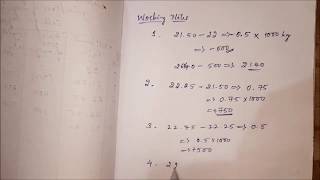 Working Notes
1. 21.50 - 22 => -0.5 x 1000 kg
=> -500
2640 - 500 => 2140
2. 22.25 - 21.50 => 0.75
=> 0.75 x 1000
=> +750
3. 22.75 - 22.25 => 0.5
=> 0.5 x 1000
=> +500
4. 22